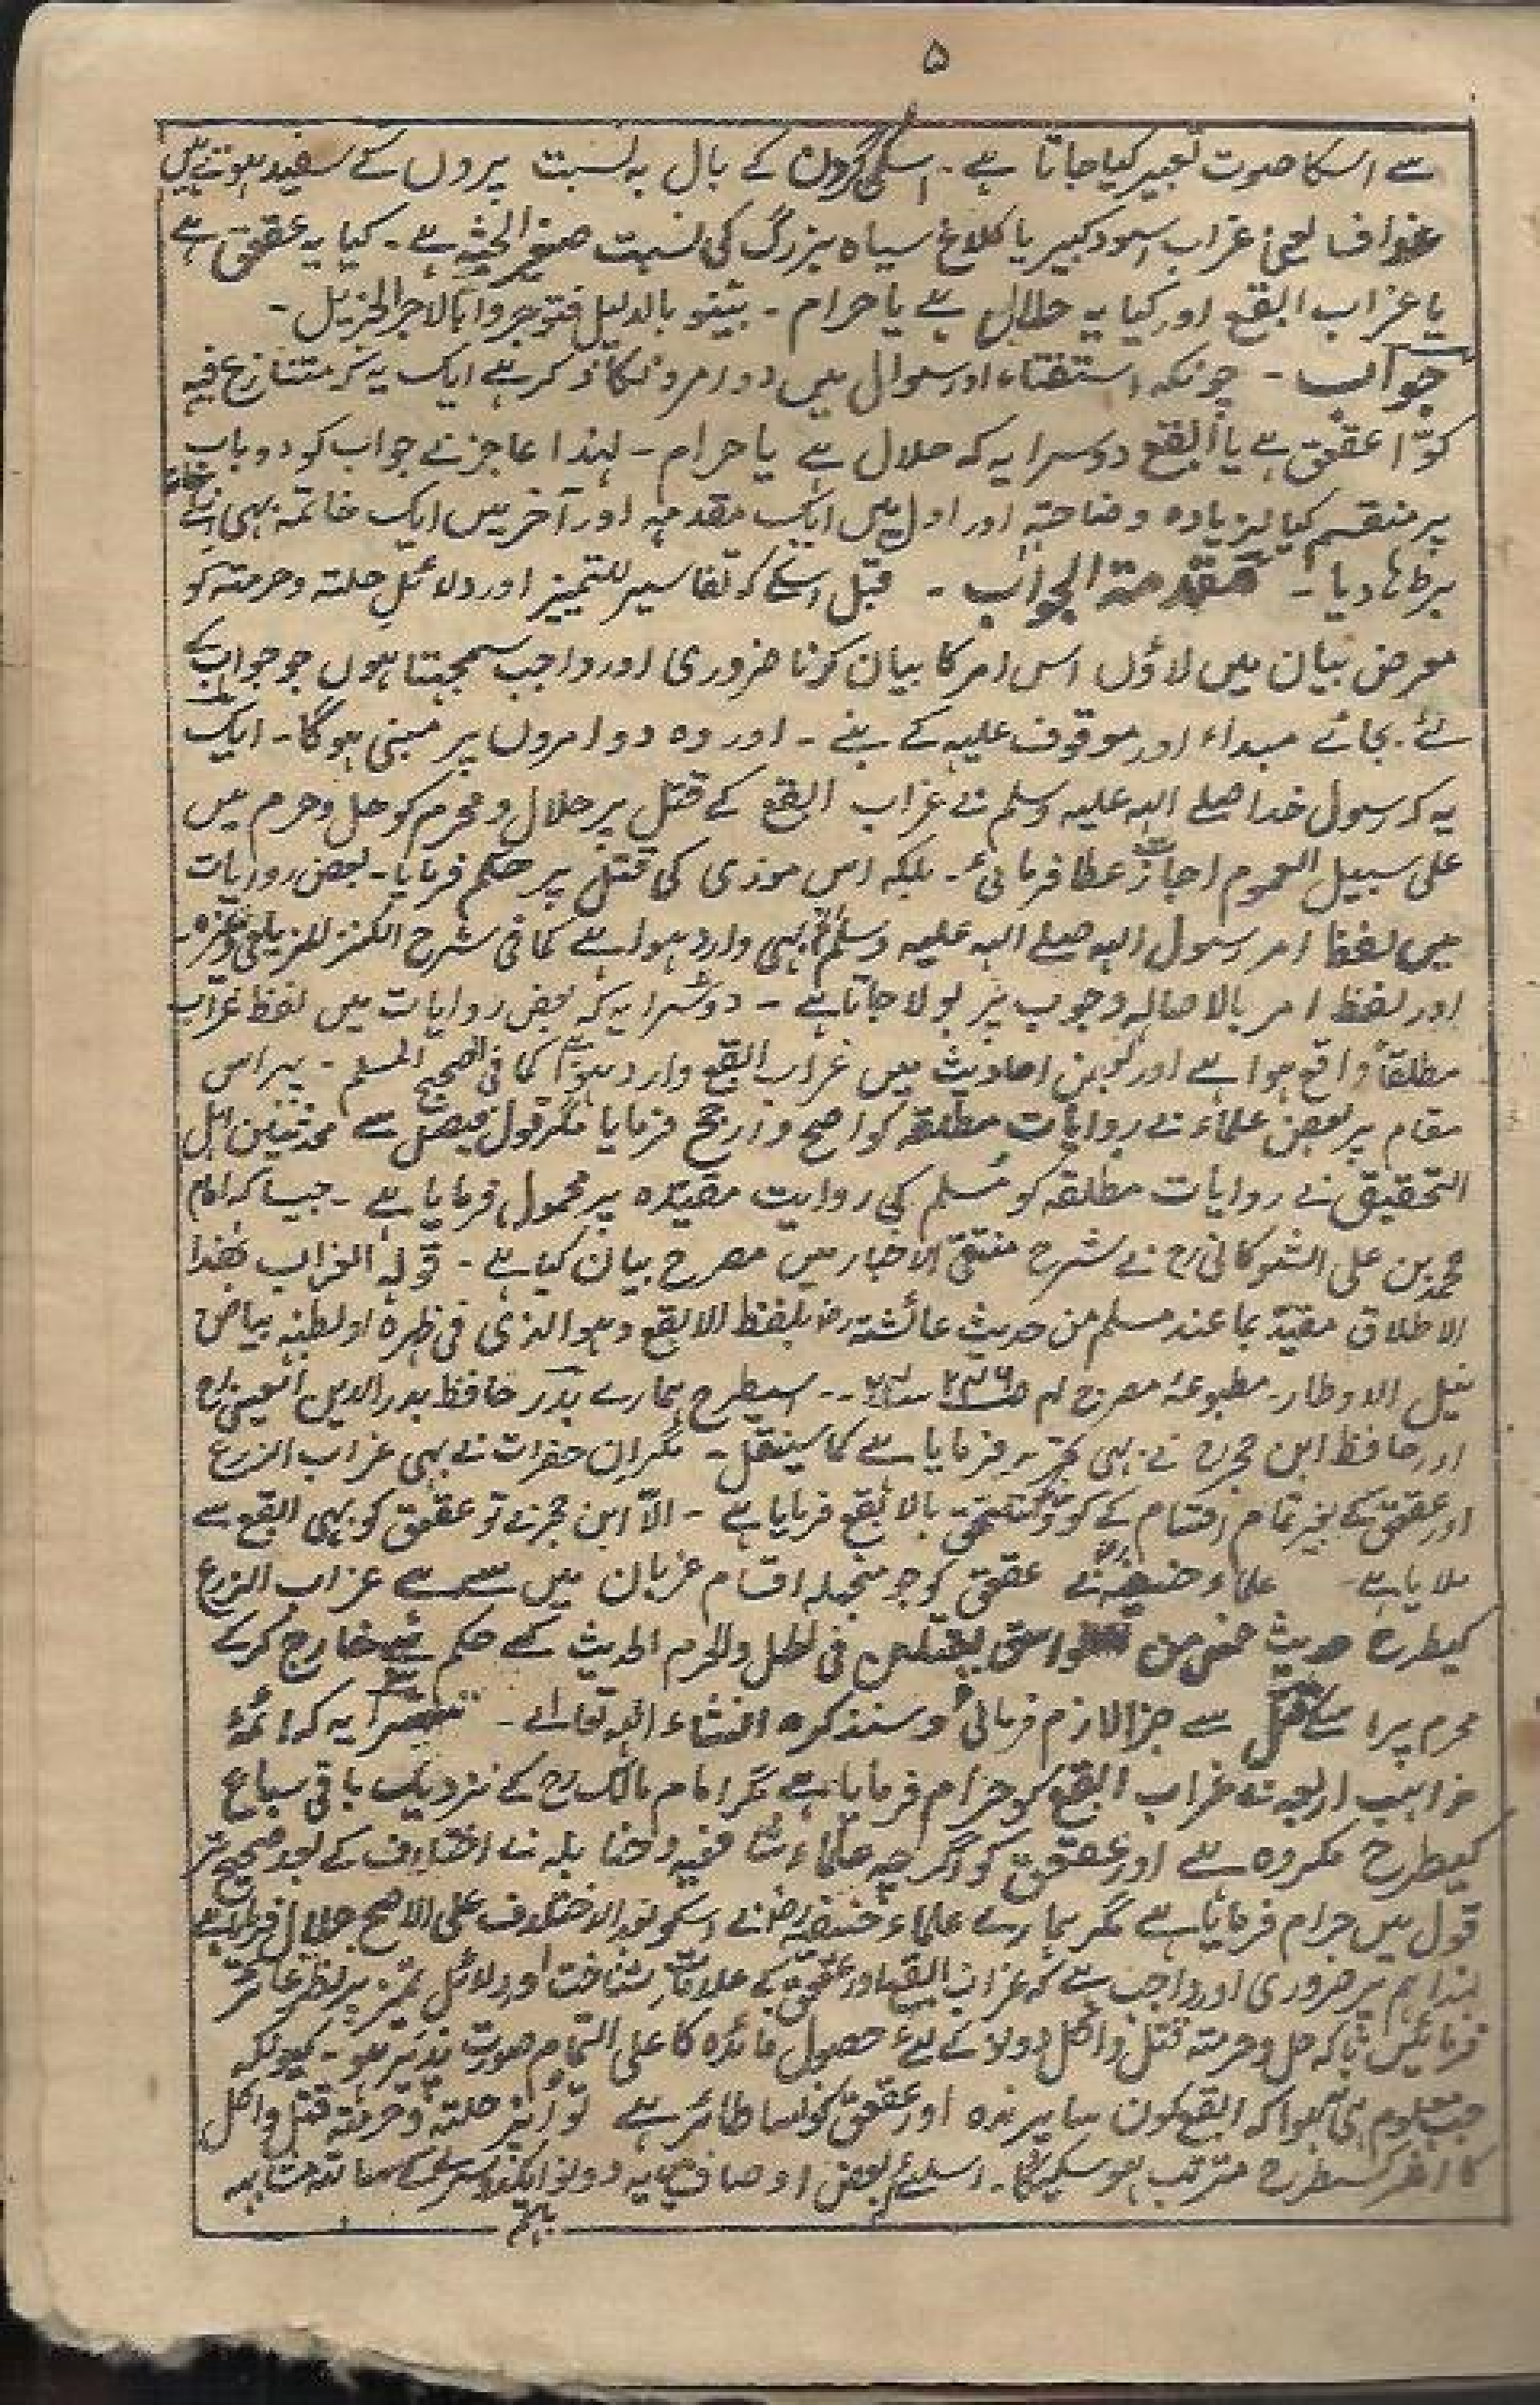 ۵
سے اسکا صوت تعبیر کیا جاتا ہے ۔ اسکی گردن کے بال بہ نسبت پروں کے سفید ہوتے ہیں
غداف یعنی غراب اسود کبیر یا کلاغ سیاہ بزرگ کی نسبت صغیر الجثہ ہے ۔ کیا یہ عقعق ہے
یا غراب ابقع اور کیا یہ حلال ہے یا حرام ۔ بینو بالدلیل فتوجروا بالاجر الجزیل ۔
جواب ۔ چونکہ استفتاء اور سوال میں دو امرونکا ذکر ہے ایک یہ کہ متنازع فیہ
کوّا عقعق ہے یا ابقع دوسرا یہ کہ حلال ہے یا حرام ۔ لہٰذا عاجز نے جواب کو دو باب
پر منقسم کیا لزیادہ وضاحتہ اور اول میں ایک مقدمہ اور آخر میں ایک خاتمہ بہی
بڑہا دیا ۔ مقدمۃ الجواب ۔ قبل اسکے کہ تفاسیر للتمییز اور دلائل حلتہ و حرمتہ کو
معرض بیان میں لاؤں اس امر کا بیان کرنا ضروری اور واجب سمجہتا ہوں جو جواب کے
لئے بجائے مبداء اور موقوف علیہ کے بنے ۔ اور وہ دو امروں پر مبنی ہوگا ۔ ایک
یہ کہ رسول خدا صلے اللہ علیہ وسلم نے غراب ابقع کے قتل پر حلال و محرم کو حل و حرم میں
علی سبیل العموم اجازت عطا فرمائی ۔ بلکہ اس موذی کی قتل پر حکم فرمایا ۔ بعض روایات
میں لفظ امر رسول اللہ صلے اللہ علیہ وسلم بہی وارد ہوا ہے کما فی شرح الکنز للزیلعی وغیرہ
اور لفظ امر بالاصالہ وجوب پر بولا جاتا ہے ۔ دوسرا یہ کہ بعض روایات میں لفظ غراب
مطلقاً واقع ہوا ہے اور بعض احادیث میں غراب ابقع وارد ہوا کما فی الصحیح المسلم ۔ پہر اس
مقام پر بعض علماء نے روایات مطلقہ کو اصح و ارجح فرمایا مگر قول فیصل سے محدثین اہل
التحقیق نے روایات مطلقہ کو مسلم کی روایت مقیدہ پر محمول فرمایا ہے ۔ جیسا کہ امام
محمد بن علی الشوکانی رح نے شرح منتقی الاخبار میں مصرح بیان کیا ہے ۔ قولہ الغراب ھذا
الاطلاق مقید بما عند مسلم من حدیث عائشہ رض بلفظ الابقع وہو الذی فی ظہرہ او بطنہ بیاض
نیل الاوطار ۔ مطبوعۂ مصر ج ۴ ۔۔ اسیطرح ہمارے بدر حافظ بدر الدین العینی رح
اور حافظ ابن حجر رح نے بہی تحریر فرمایا ہے کما سینقل ۔ مگر ان حضرات نے بہی غراب الزرع
اور عقعق کے بغیر تمام اقسام کے کوّونکو ملحق بالابقع فرمایا ہے ۔ الّا ابن حجر نے تو عقعق کو بہی ابقع سے
ملایا ہے ۔ علماء حنیفہ نے عقعق کو جو منجملہ اقسام غربان میں سے ہے غراب الزرع
کیطرح حدیث خمس من فواسق یقتلن فی الحل والحرم الحدیث کے حکم سے خارج کر کے
محرم پر اسکے قتل سے جزا لازم فرمائی و سنذکرہ انشاء اللہ تعالے ۔ تیسرا یہ کہ ائمۂ
مذاہب اربعہ نے غراب ابقع کو حرام فرمایا ہے مگر امام مالک رح کے نزدیک باقی سباع
کیطرح مکروہ ہے اور عقعق کو اگرچہ علماء شافعیہ و حنابلہ نے اختلاف کے بعد صحیح تر
قول میں حرام فرمایا ہے مگر ہمارے علماء حنفیہ نے اسکو بعد الاختلاف علی الاصح حلال فرمایا ہے
لہٰذا ہم پر ضروری اور واجب ہے کہ غراب ابقع اور عقعق کے علامات شناخت اور دلائل تمیز پر نظر غائر
فرمائیں تا کہ حل و حرمتہ قتل و اکل دونو کے لئے حصول فائدہ کا علی التمام صورت پذیر ہو ۔ کیونکہ
جب معلوم ہی نہوا کہ ابقع کون سا پرندہ اور عقعق کونسا طائر ہے تو اثر حلتہ و حرمتہ قتل و اکل
کا اثر کسطرح مترتب ہو سکیگا ۔ اسلئے بعض اوصاف میں یہ دونو ایکدوسرے کے ساتہہ مشابہ